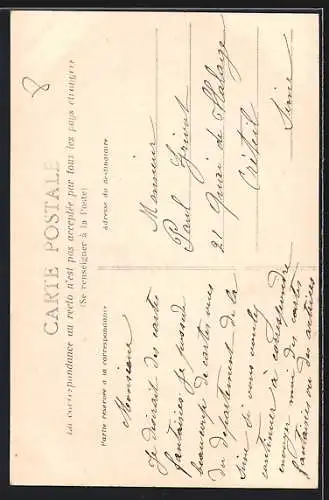 8
CARTE POSTALE
La correspondance au recto n'est pas acceptée par tous les pays étrangers
(Se renseigner à la Poste)
Partie réservée à la correspondance
Adresse du destinataire
Monsieur
Je désirait des cartes
fantaisies. Je possède
beaucoup de cartes vues
du département de la
Seine si vous voulez
continuer à correspondre
envoyer moi des cartes
fantaisies ou des actrices
Monsieur
Paul Grivot
21 Quai de Halage
Créteil
Seine